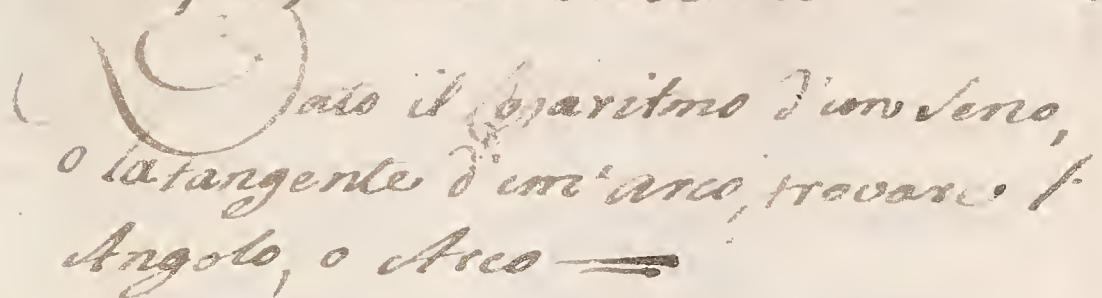 Dato il Logaritmo d'uno Seno,
o la tangente d'un'arco, trovare l'
Angolo, o Arco